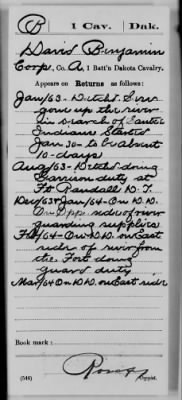 B | 1 Cav. | Dak.
David Benjamin
Corp., Co. A, 1 Batt'n Dakota Cavalry.
Appears on Returns as follows:
Jan/63- Detchd. Serv
gone up the river
in search of Santee
Indians Started
Jan. 30- to be absent
10-days
Aug/63- Detchd doing
Garrison duty at
Ft Randall D. T.
Dec/63 & Jan/64- On D.D.
On Opp. side of river
guarding supplies
Feb/64- On D.D. on East
side of river from
the Fort doing
guard duty
Mar/64 On D.D. on East side
Book mark:
(546)
Copyist.